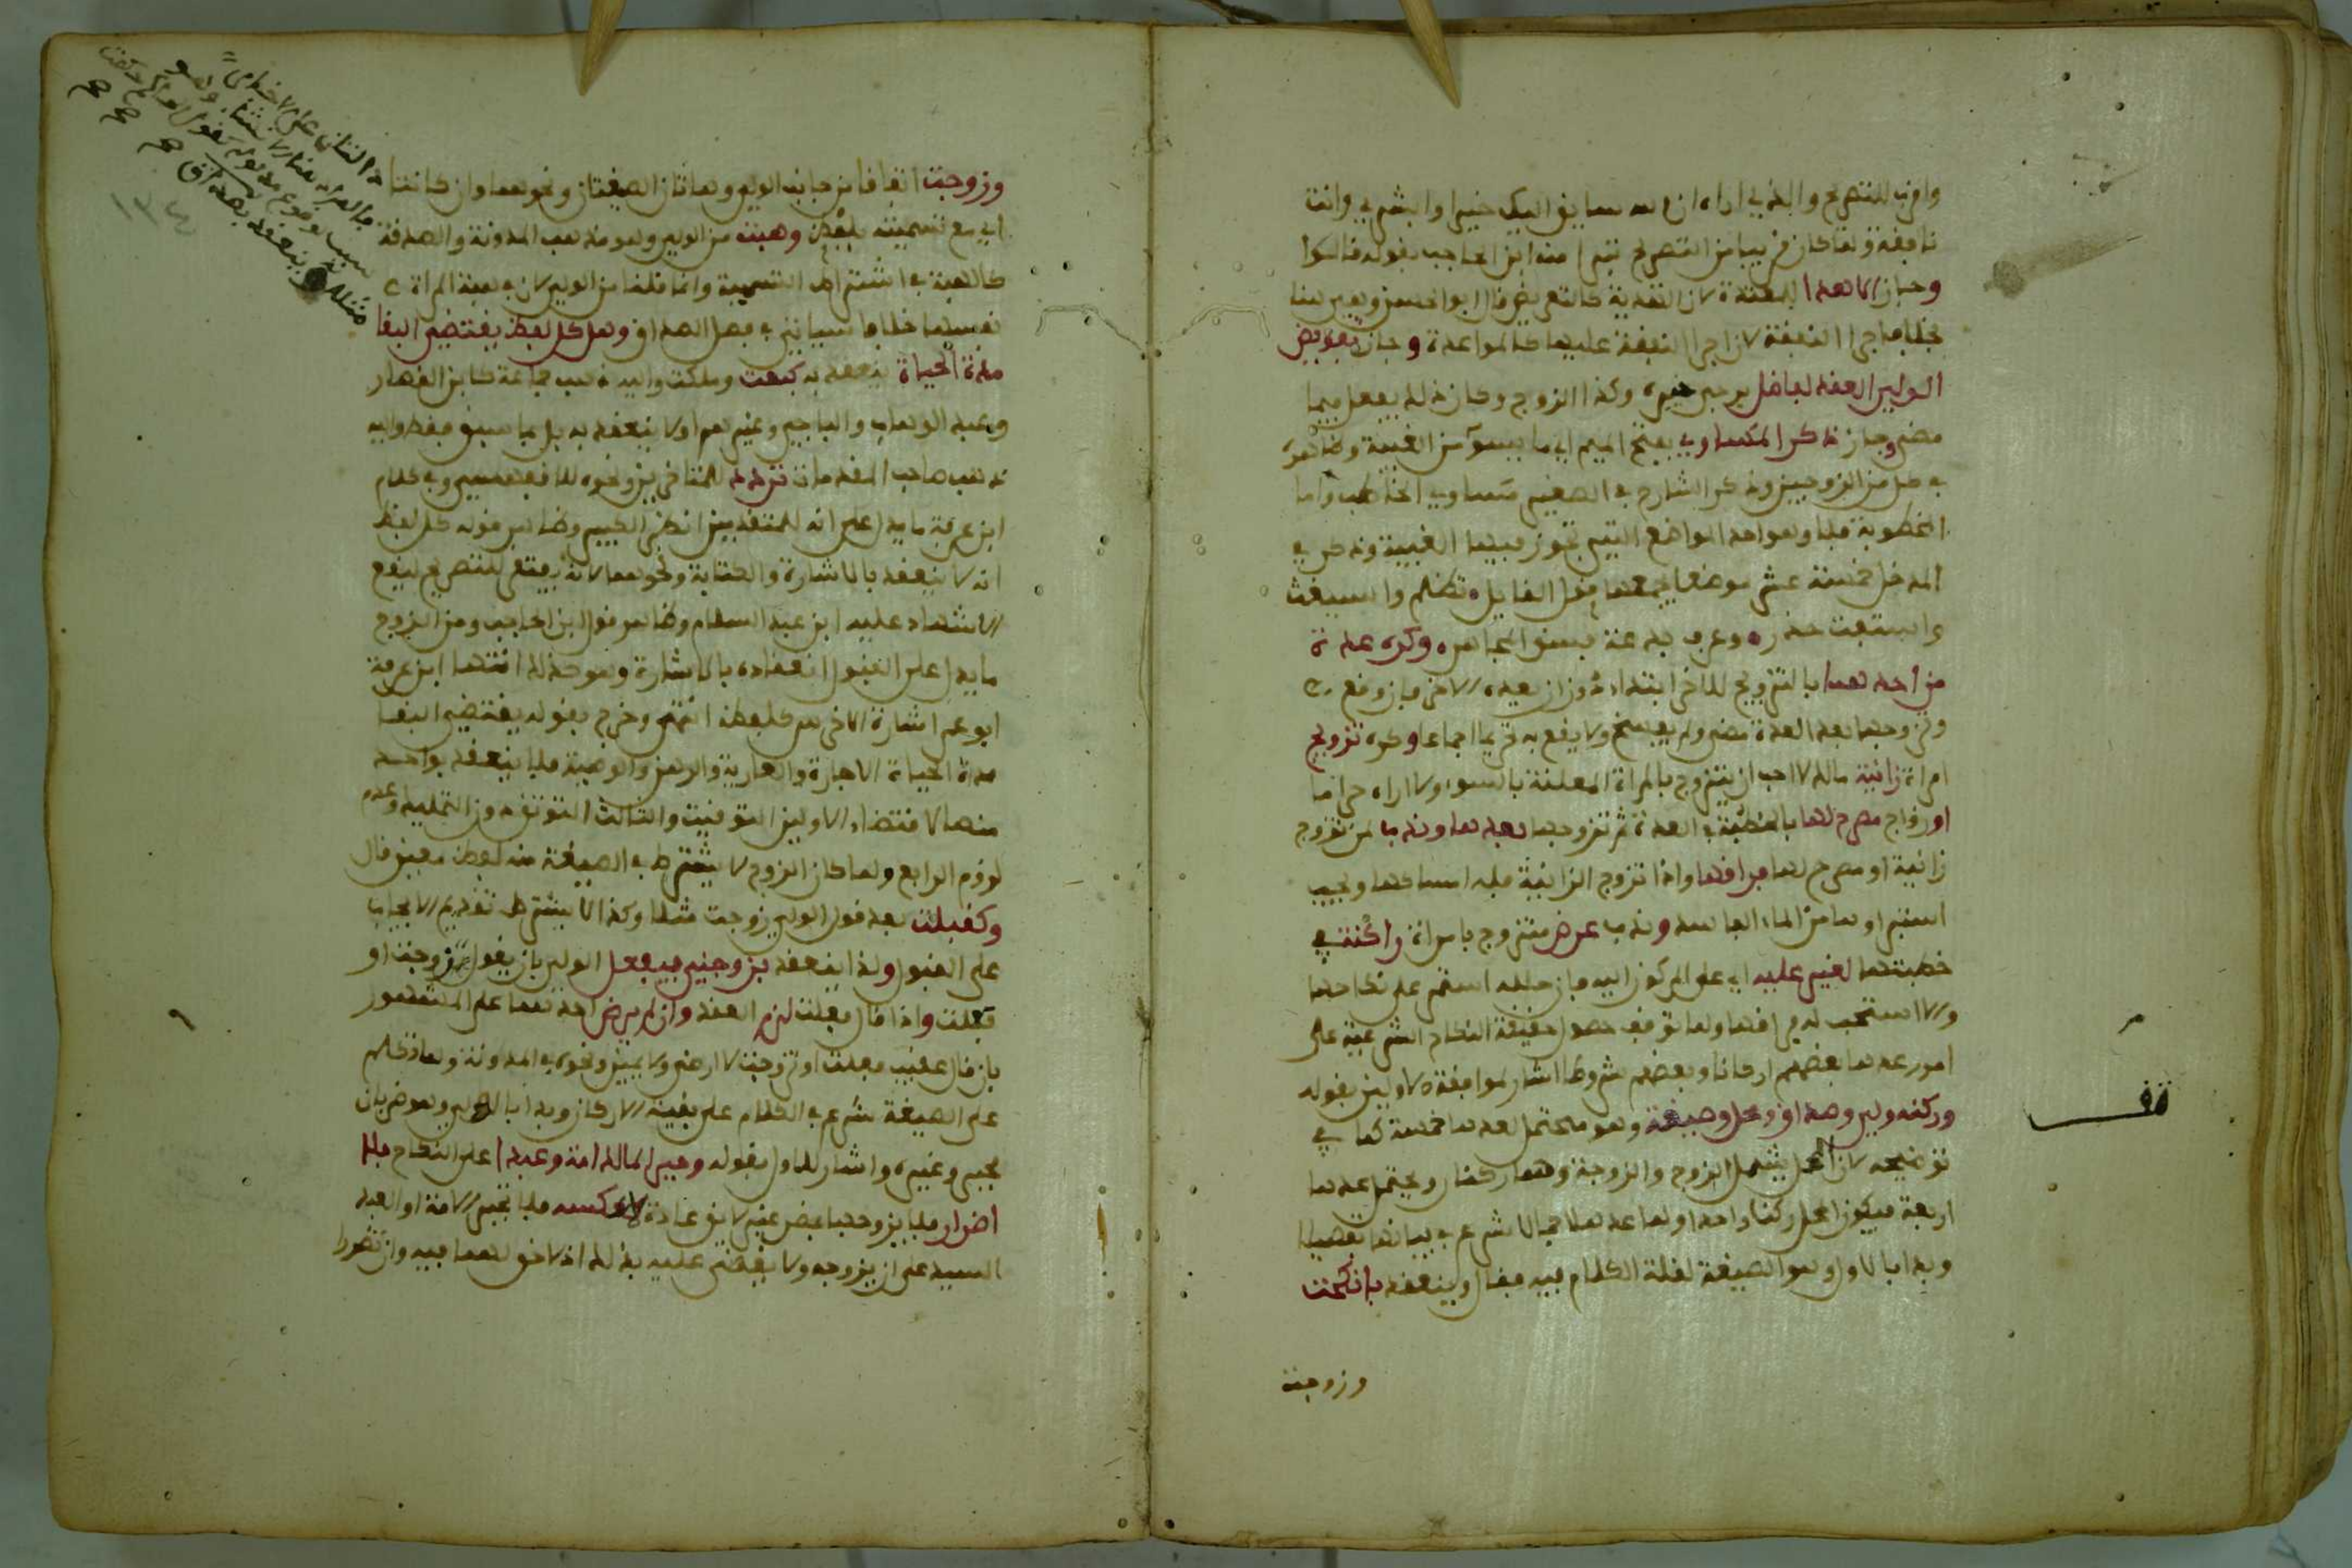 واقرب للتصريح والبذي اراه ان الله سايق اليك خيرا وابشري وانت
نافقة ولما كان قريبا من التصريح تبرا منه ابن الحاجب بقوله قالوا
وجاز الاهداء للمعتدة لان الهدية كالتعريض قال ابو الحسن وغير هنا
بخلاف اجراء النفقة لان اجراء النفقة عليها كالمواعدة وجاز تفويض
الولي العقد لفاضل يرجى خيره وكذا الزوج وكان ذلك يفعل فيما
مضى وجاز ذكر المساوي بفتح الميم اي ما يسوء من الغيبة وظاهره
في كل من الزوجين وذكر الشارح في الصغير مساوي الخاطب واما
المخطوبة فلا وهو احد المواضع التي تجوز فيها الغيبة وذكر في
المدخل خمسة عشر موضعا يجمعها قول القايل تظلم واستغث
واستفت حذره وعرف بدعة فسق المجاهره وكره عدة
من احدهما بالتزويج للاخر ابتداء دون ان يعده الاخر فان وقع
وتزوجها بعد العدة مضى ولم يفسخ ولا يقع به تحريم اجماعا وكره تزويج
امراة زانية مالك لا احب ان يتزوج بالمراة المعلنة بالسوء ولا اراه حراما
او زواج مصرح لها بالخطبة في العدة ثم تزوجها بعدها وندب لمن تزوج
زانية او مصرح لها فراقها واذا تزوج الزانية فله امساكها ويجب
استبراوها من الماء الفاسد وندب عرض متزوج بامراة راكنة في
خطبتها لغير عليه اي على المركون اليه فان حلله استمر على نكاحها
والا استحب له فراقها ولما توقف حصول حقيقة النكاح الشرعية على
امور عدها بعضهم اركانا وبعضهم شروطا اشار لموافقة الاولين بقوله
وركنه ولي وصداق ومحل وصيغة وهو محتمل لعدها خمسة كما في
توضيحه لان المحل يشمل الزوج والزوجة وهما ركنان ويحتمل عدها
اربعة فيكون المحل ركنا واحدا ولما عدها اجمالا شرع في بيانها تفصيلا
وبدا بالاول وهو الصيغة لقلة الكلام فيه فقال وينعقد بانكحت
وزوجت
تقف
وزوجت اتفاقا من جانب الولي وهاتان الصيغتان ونحوهما وان كانتا
اي مع تسمية بلفظ وهبت من الولي وهو مذهب المدونة والصدقة
كالهبة في اشتراط التسمية وانما قلنا من الولي لان في هبة المراة
نفسها خلافا سياتي في فصل الصداق وهل كل لفظ يقتضي البقاء
مدة الحياة ينعقد به كبعت وملكت واليه ذهب جماعة كابن القصار
وعبد الوهاب والباجي وغيرهم او لا ينعقد به بل بما سبق فقط واليه
ذهب صاحب المقدمات تردد للمتاخرين ونحوه للاقفهسي وفي كلام
ابن عرفة ما يدل على انه للمتقدمين انظر الكبير وظاهر قوله كل لفظ
انه لا ينعقد بالاشارة والكتابة ونحوهما لانه يفتقر للتصريح ليقع
الاشهاد عليه ابن عبد السلام وظاهر قول ابن الحاجب ومن الزوج
ما يدل على القبول انعقاده بالاشارة وهو كذلك انتهى ابن عرفة
ابو عمر اشارة الاخرس كلفظه انتهى وخرج بقوله يقتضي البقاء
مدة الحياة الاجارة والعارية والرهن والوصية فلا ينعقد بواحد
منها لاقتضاء الاولين التوقيت والثالث التوثق دون التمليك وعدم
لزوم الرابع ولما كان الزوج لا يشترط في الصيغة منه لفظ معين قال
وكقبلت بعد قول الولي زوجت مثلا وكذا لا يشترط تقديم الايجاب
على القبول ولذا ينعقد بزوجني فيفعل الولي بان يقول زوجت او
فعلت واذا قال فعلت لزم العقد وان لم يرض احدهما على المشهور
بان قال عقب فعلت او تزوجت لا ارضى ولا يمين ونحوه في المدونة ولما تكلم
على الصيغة شرع في الكلام على بقية الاركان وبدا بالولي وهو ضربان
مجبر وغيره واشار للاول بقوله وجبر المالك امة وعبدا على النكاح بلا
اضرار فلا يزوجها عن غير لايق عادة لا عكسه فلا تجبر الامة او العبد
السيد على ان يزوجه ولا يقضى عليه بذلك اذ لا حق لهما فيه وان تضررا
١٣٤